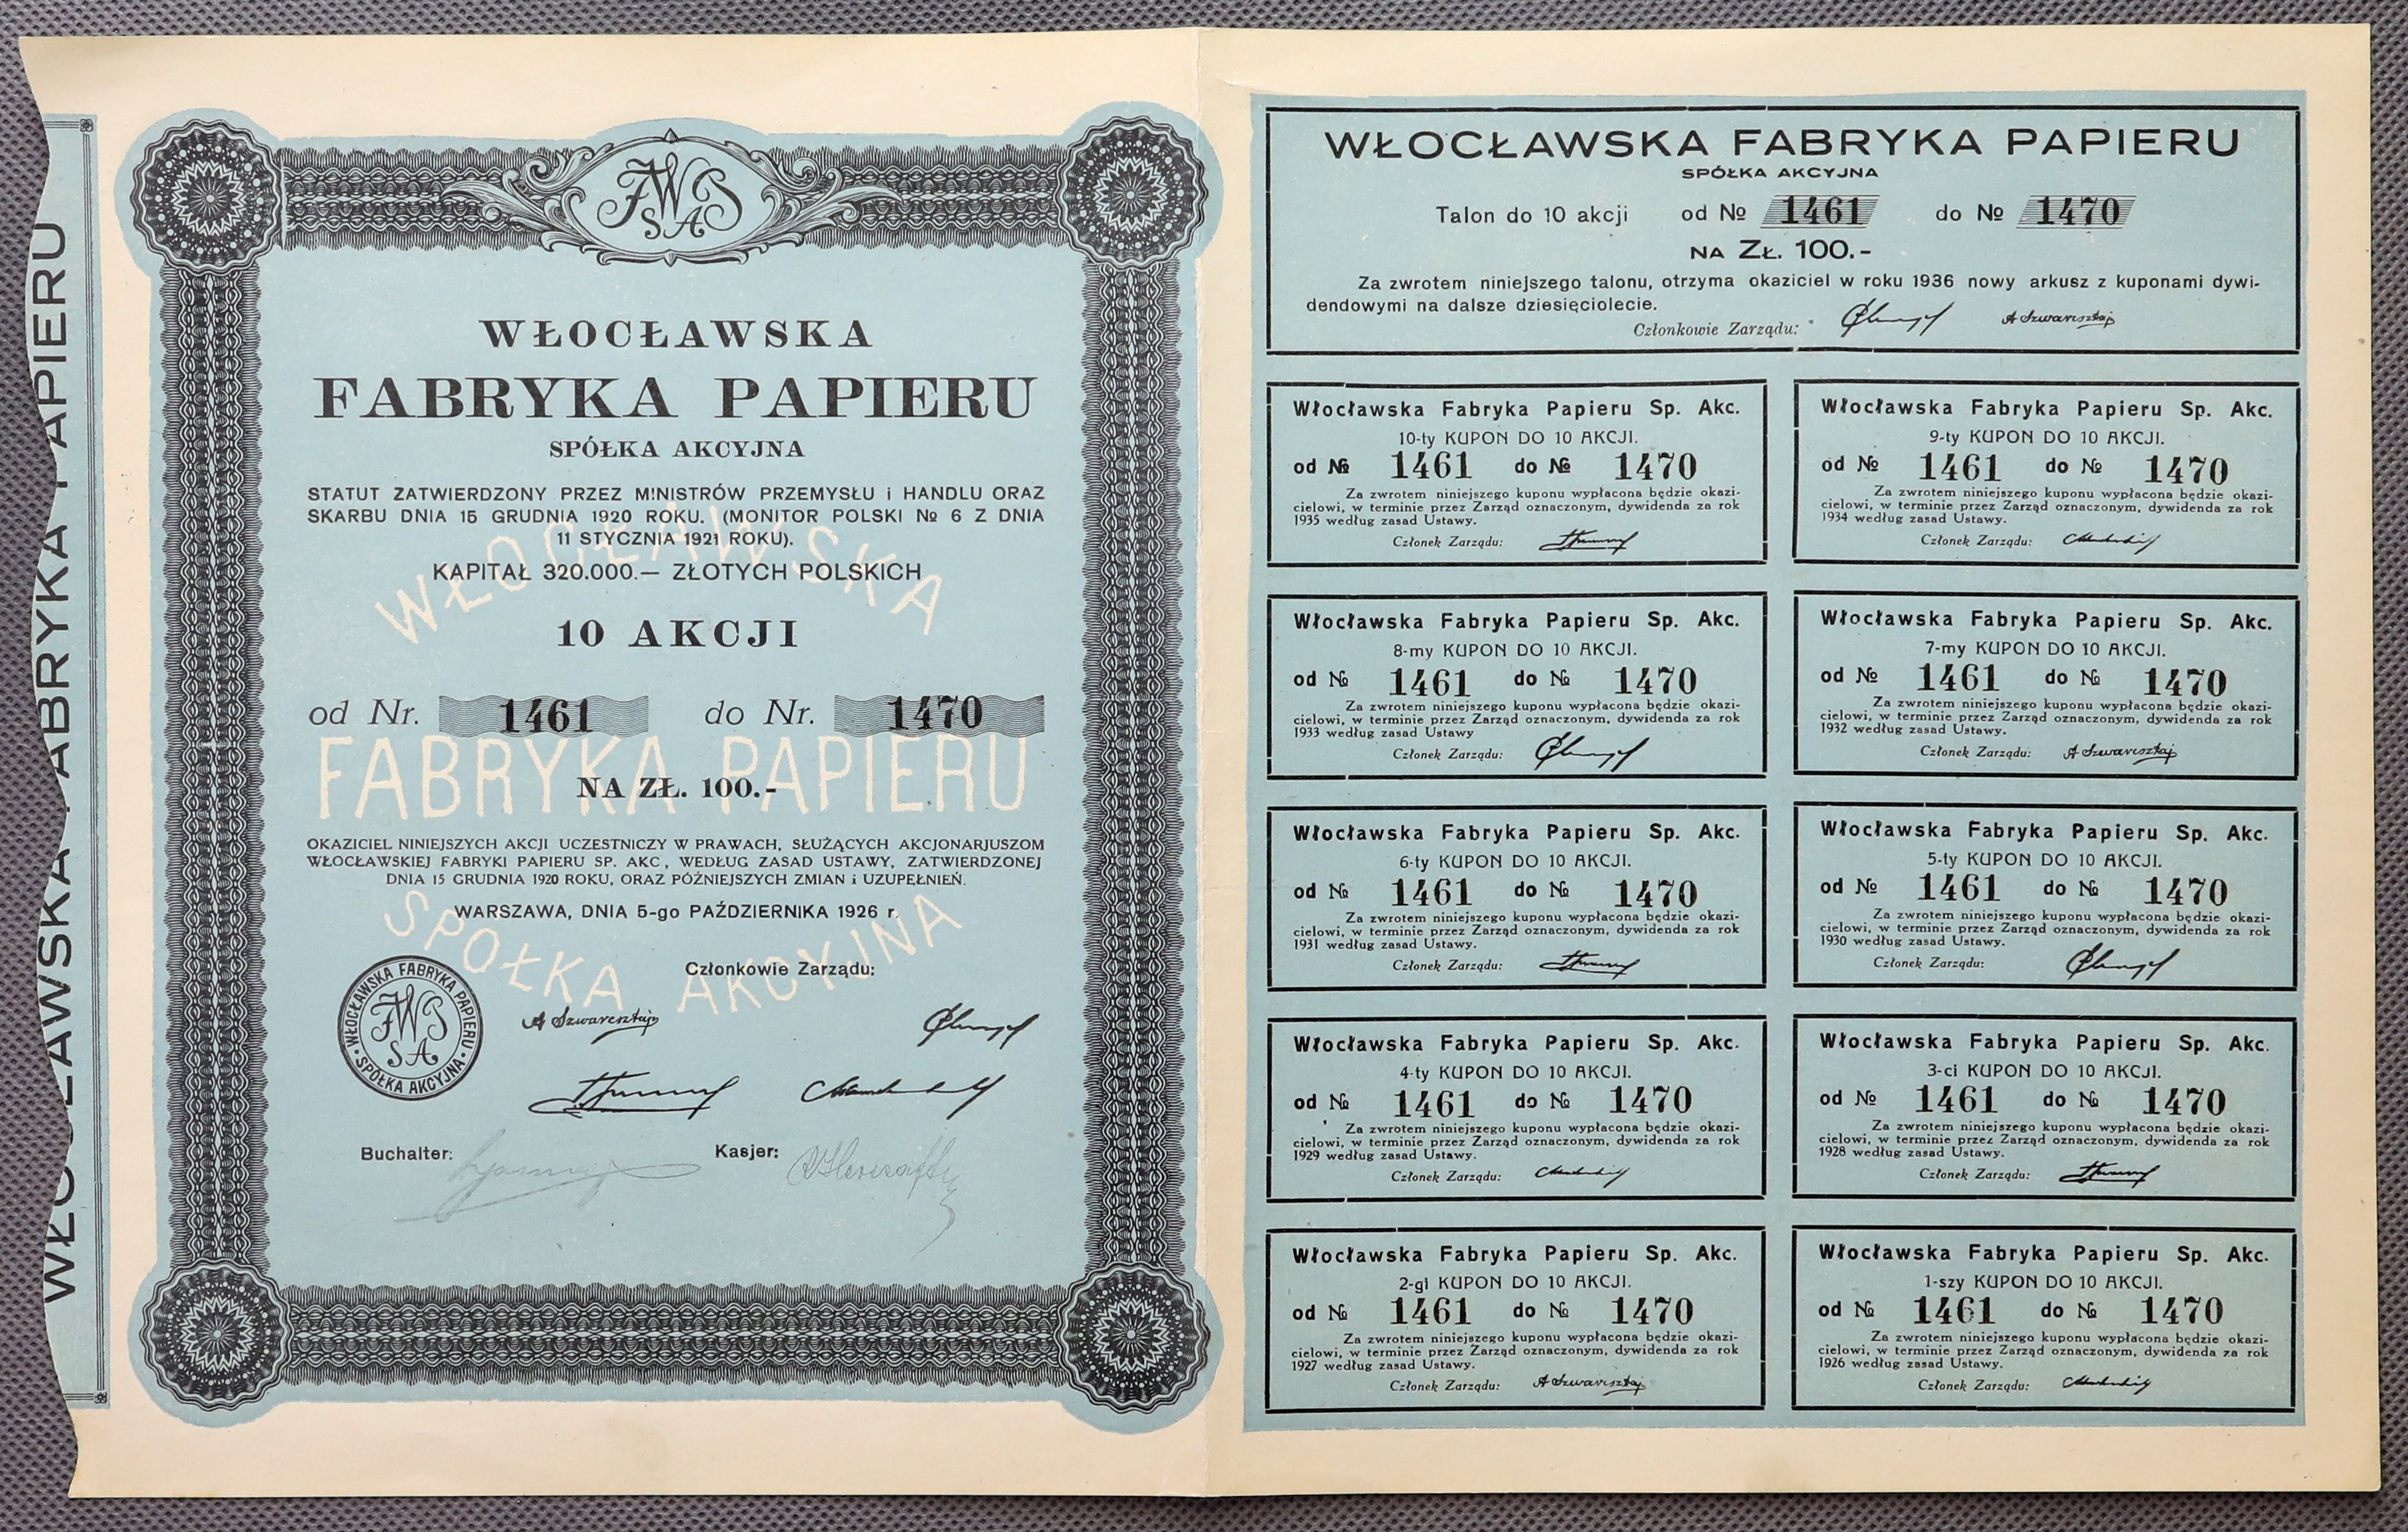 WŁOCŁAWSKA FABRYKA PAPIERU
JWP
SA
WŁOCŁAWSKA
FABRYKA PAPIERU
SPÓŁKA AKCYJNA
STATUT ZATWIERDZONY PRZEZ MINISTRÓW PRZEMYSŁU i HANDLU ORAZ
SKARBU DNIA 15 GRUDNIA 1920 ROKU. (MONITOR POLSKI № 6 Z DNIA
11 STYCZNIA 1921 ROKU).
KAPITAŁ 320.000.— ZŁOTYCH POLSKICH
WŁOCŁAWSKA
10 AKCJI
od Nr. 1461 do Nr. 1470
FABRYKA PAPIERU
NA ZŁ. 100.-
OKAZICIEL NINIEJSZYCH AKCJI UCZESTNICZY W PRAWACH, SŁUŻĄCYCH AKCJONARJUSZOM
WŁOCŁAWSKIEJ FABRYKI PAPIERU SP. AKC, WEDŁUG ZASAD USTAWY, ZATWIERDZONEJ
DNIA 15 GRUDNIA 1920 ROKU, ORAZ PÓŹNIEJSZYCH ZMIAN i UZUPEŁNIEŃ.
WARSZAWA, DNIA 5-go PAŹDZIERNIKA 1926 r.
SPÓŁKA AKCYJNA
Członkowie Zarządu:
WŁOCŁAWSKA FABRYKA PAPIERU
JWP
SA
SPÓŁKA AKCYJNA
A Szwarcsztajn
Buchalter:
Kasjer:
WŁOCŁAWSKA FABRYKA PAPIERU
SPÓŁKA AKCYJNA
Talon do 10 akcji od № 1461 do № 1470
NA ZŁ. 100.-
Za zwrotem niniejszego talonu, otrzyma okaziciel w roku 1936 nowy arkusz z kuponami dywi-
dendowymi na dalsze dziesięciolecie.
Członkowie Zarządu: A Szwarcsztajn
Włocławska Fabryka Papieru Sp. Akc.
10-ty KUPON DO 10 AKCJI.
od № 1461 do № 1470
Za zwrotem niniejszego kuponu wypłacona będzie okazi-
cielowi, w terminie przez Zarząd oznaczonym, dywidenda za rok
1935 według zasad Ustawy.
Członek Zarządu:
Włocławska Fabryka Papieru Sp. Akc.
9-ty KUPON DO 10 AKCJI.
od № 1461 do № 1470
Za zwrotem niniejszego kuponu wypłacona będzie okazi-
cielowi, w terminie przez Zarząd oznaczonym, dywidenda za rok
1934 według zasad Ustawy.
Członek Zarządu:
Włocławska Fabryka Papieru Sp. Akc.
8-my KUPON DO 10 AKCJI.
od № 1461 do № 1470
Za zwrotem niniejszego kuponu wypłacona będzie okazi-
cielowi, w terminie przez Zarząd oznaczonym, dywidenda za rok
1933 według zasad Ustawy
Członek Zarządu:
Włocławska Fabryka Papieru Sp. Akc.
7-my KUPON DO 10 AKCJI.
od № 1461 do № 1470
Za zwrotem niniejszego kuponu wypłacona będzie okazi-
cielowi, w terminie przez Zarząd oznaczonym, dywidenda za rok
1932 według zasad Ustawy.
Członek Zarządu: A Szwarcsztajn
Włocławska Fabryka Papieru Sp. Akc.
6-ty KUPON DO 10 AKCJI.
od № 1461 do № 1470
Za zwrotem niniejszego kuponu wypłacona będzie okazi-
cielowi, w terminie przez Zarząd oznaczonym, dywidenda za rok
1931 według zasad Ustawy.
Członek Zarządu:
Włocławska Fabryka Papieru Sp. Akc.
5-ty KUPON DO 10 AKCJI.
od № 1461 do № 1470
Za zwrotem niniejszego kuponu wypłacona będzie okazi-
cielowi, w terminie przez Zarząd oznaczonym, dywidenda za rok
1930 według zasad Ustawy.
Członek Zarządu:
Włocławska Fabryka Papieru Sp. Akc.
4-ty KUPON DO 10 AKCJI.
od № 1461 do № 1470
Za zwrotem niniejszego kuponu wypłacona będzie okazi-
cielowi, w terminie przez Zarząd oznaczonym, dywidenda za rok
1929 według zasad Ustawy.
Członek Zarządu:
Włocławska Fabryka Papieru Sp. Akc.
3-ci KUPON DO 10 AKCJI.
od № 1461 do № 1470
Za zwrotem niniejszego kuponu wypłacona będzie okazi-
cielowi, w terminie przez Zarząd oznaczonym, dywidenda za rok
1928 według zasad Ustawy.
Członek Zarządu:
Włocławska Fabryka Papieru Sp. Akc.
2-gi KUPON DO 10 AKCJI.
od № 1461 do № 1470
Za zwrotem niniejszego kuponu wypłacona będzie okazi-
cielowi, w terminie przez Zarząd oznaczonym, dywidenda za rok
1927 według zasad Ustawy.
Członek Zarządu: A Szwarcsztajn
Włocławska Fabryka Papieru Sp. Akc.
1-szy KUPON DO 10 AKCJI.
od № 1461 do № 1470
Za zwrotem niniejszego kuponu wypłacona będzie okazi-
cielowi, w terminie przez Zarząd oznaczonym, dywidenda za rok
1926 według zasad Ustawy.
Członek Zarządu: